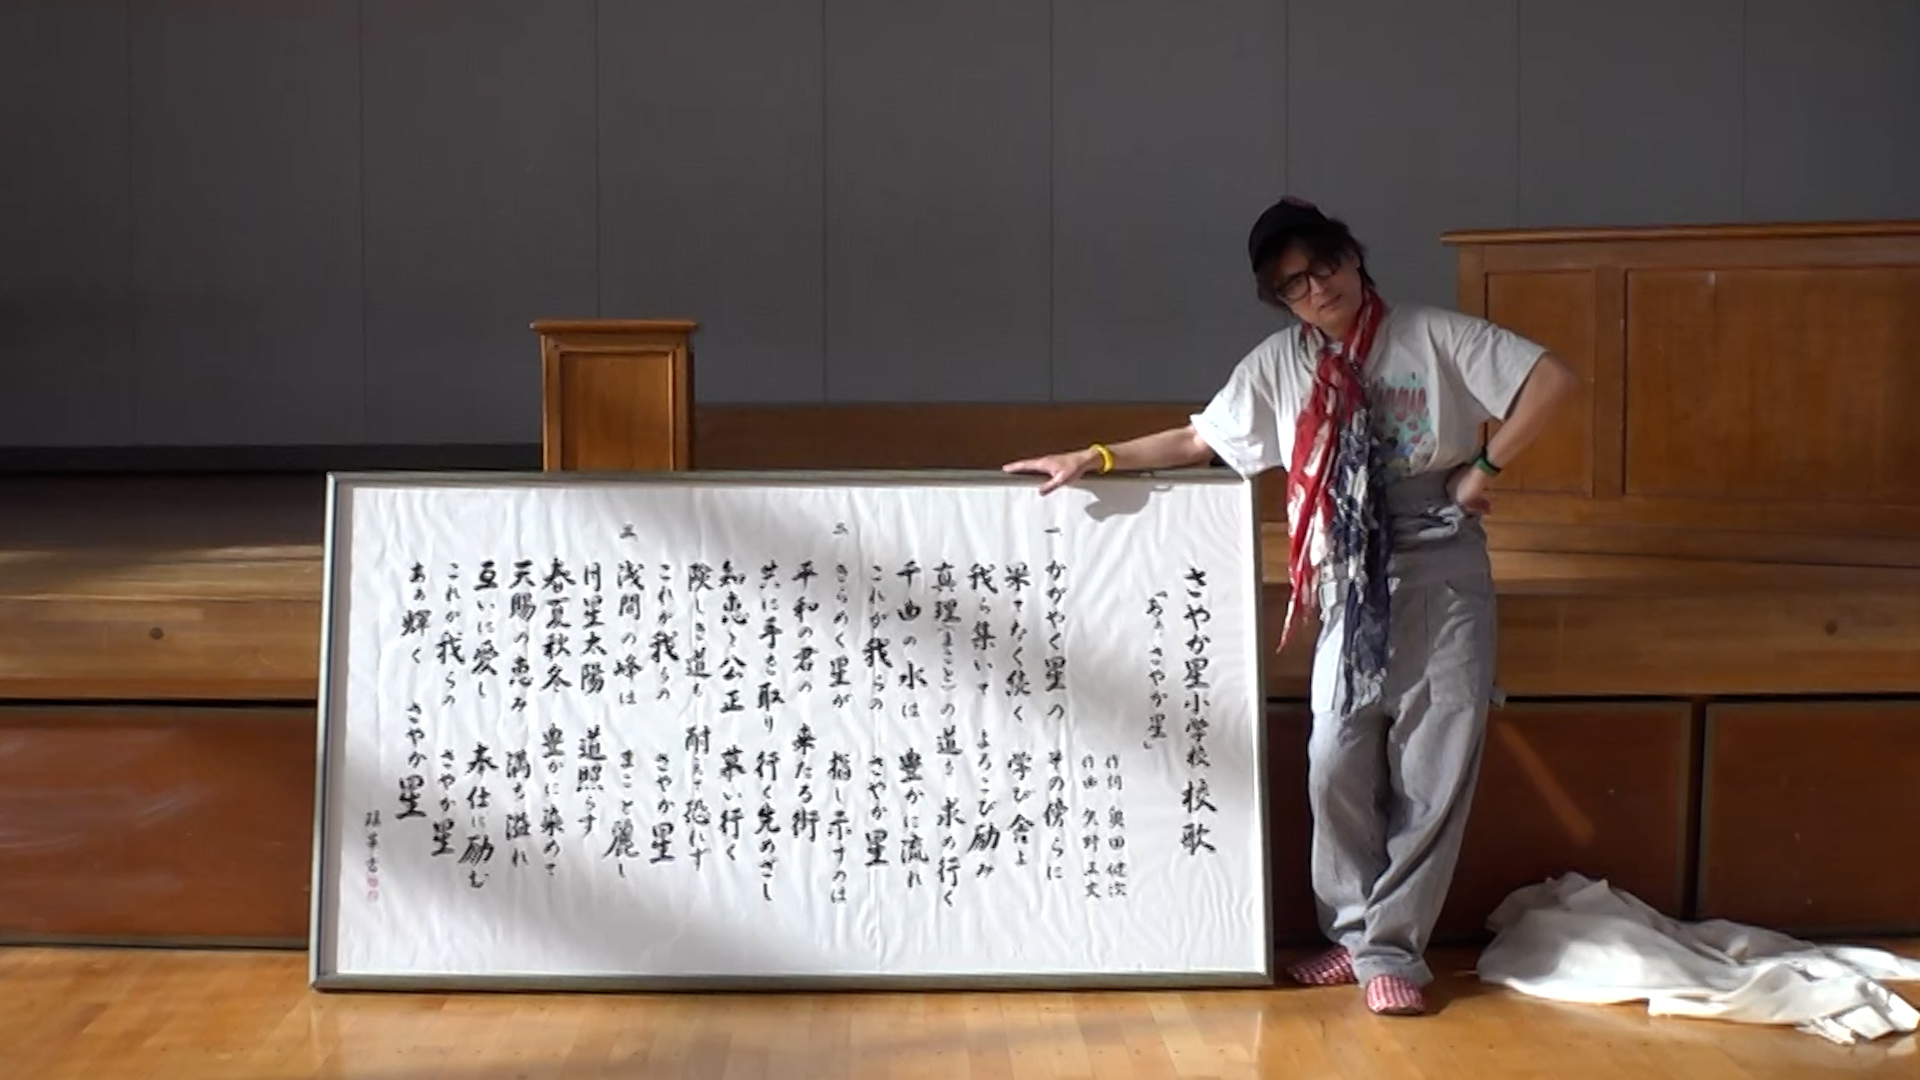 さやか星小学校 校歌
「あぁ、さやか星」
作詞 奥田健次
作曲 久野正文
一 かがやく星の その傍らに
果てなく続く 学び舎よ
我ら集いて よろこび励み
真理(まこと)の道を 求め行く
千曲の水は 豊かに流れ
これが我らの さやか星
二 きらめく星が 指し示すのは
平和の君の 来たる街
共に手を取り 行く先めざし
知恵と公正 慕い行く
険しき道も 耐えて恐れず
これが我らの さやか星
三 浅間の峰は まこと麗し
月星太陽 道照らす
春夏秋冬 豊かに染めて
天賜の恵み 満ち溢れ
互いに愛し 奉仕に励む
これが我らの さやか星
あぁ輝く さやか星